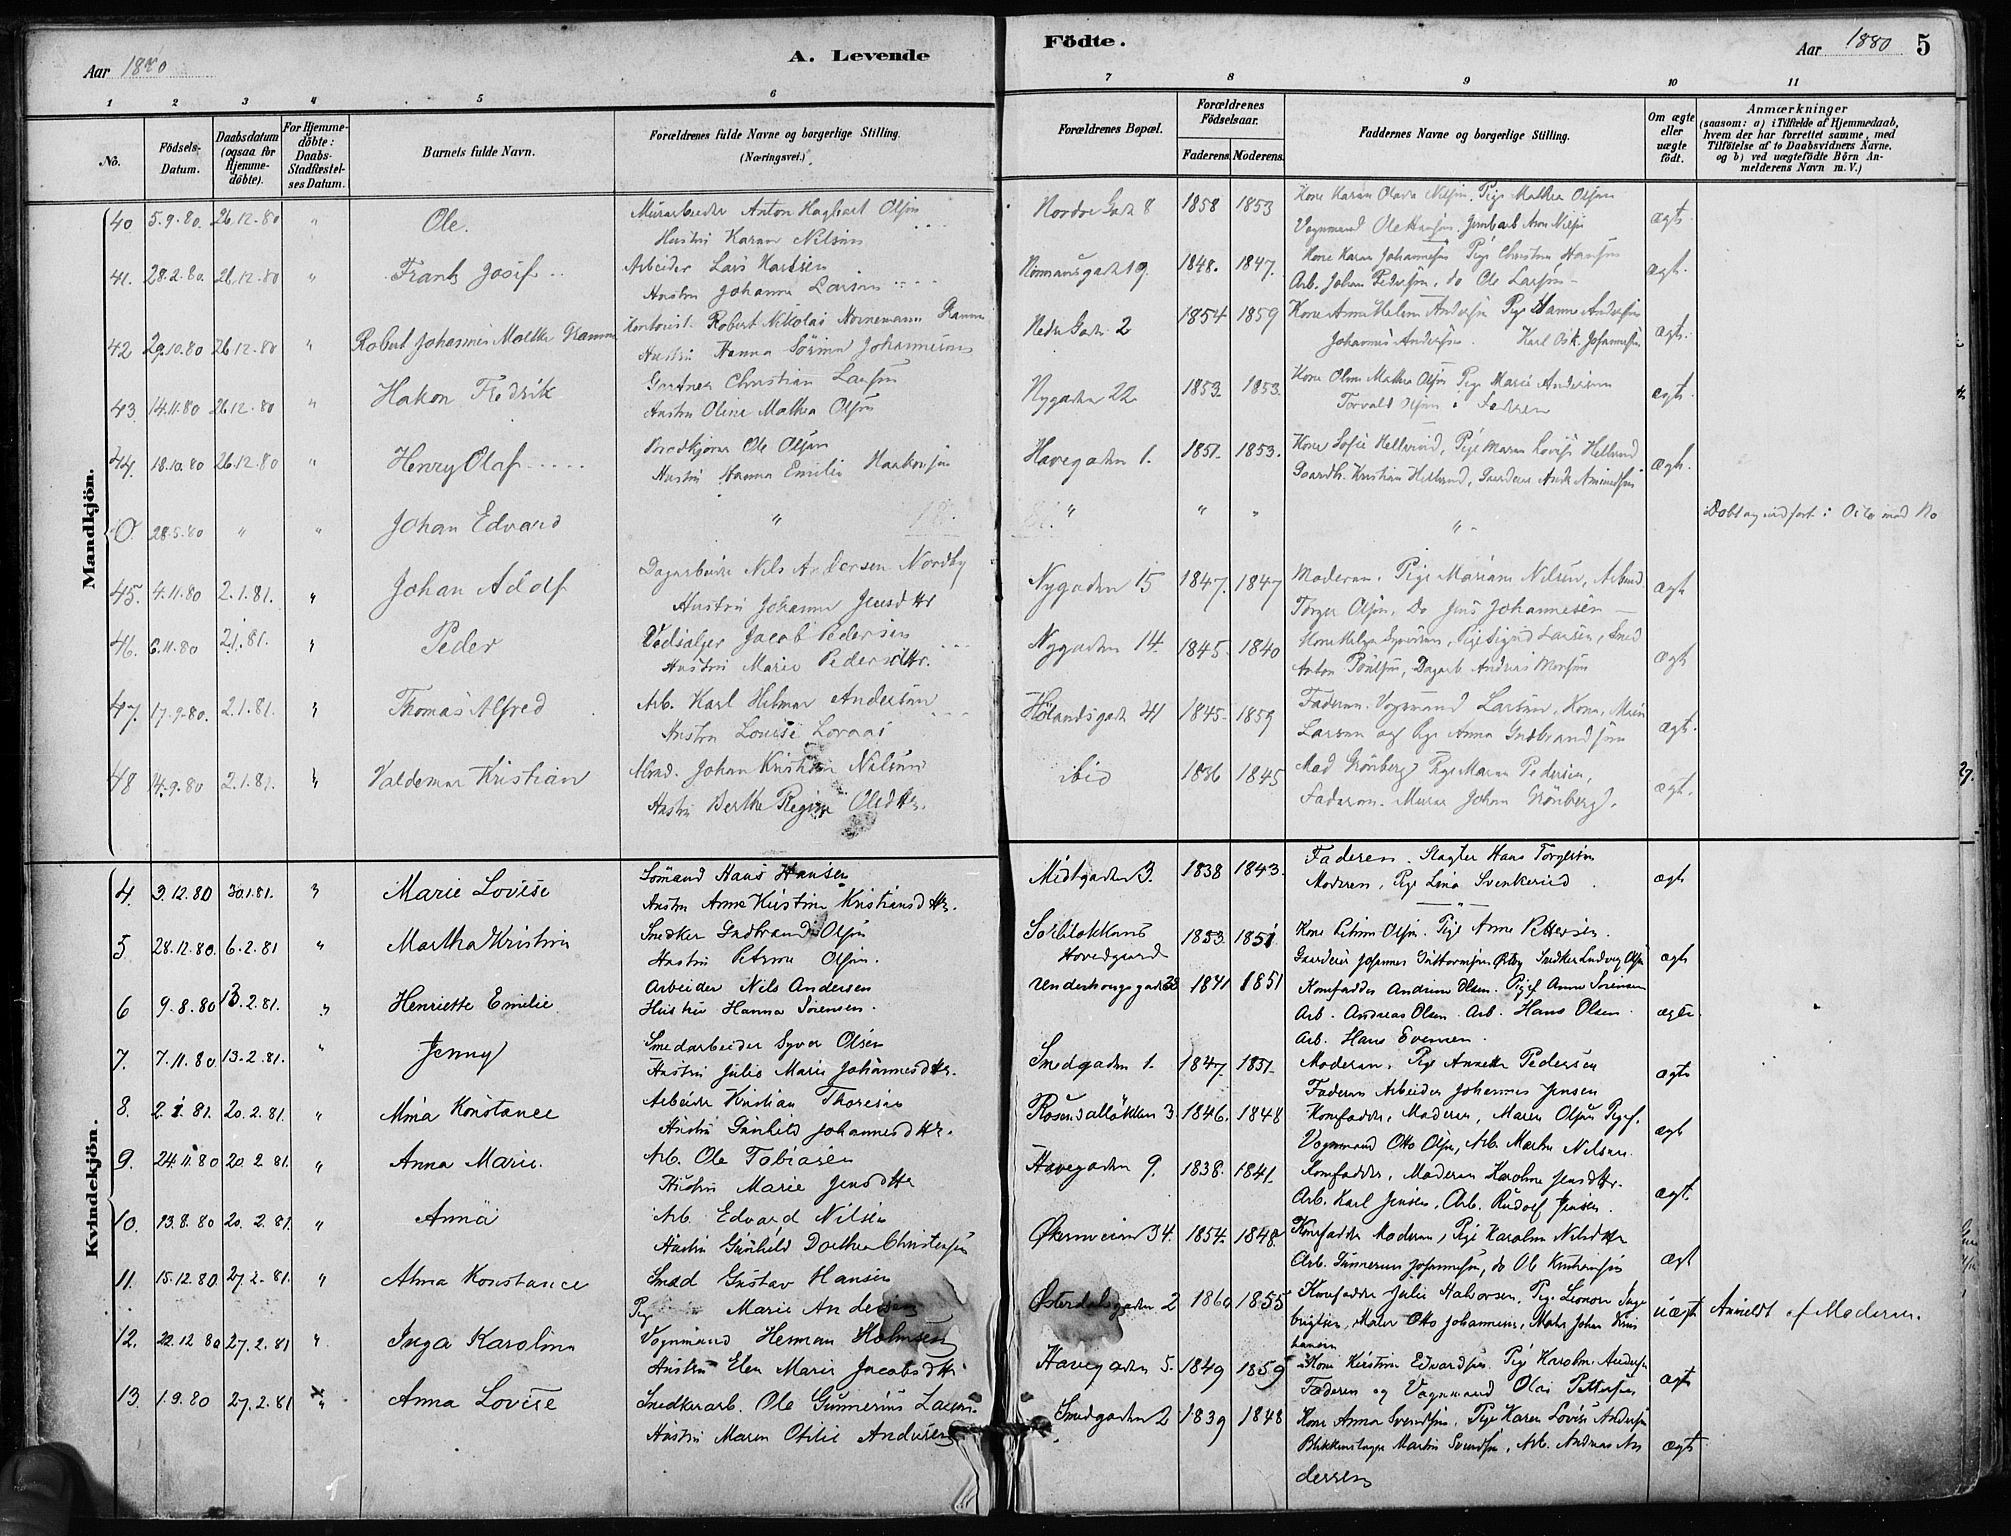 Aar 1880
A. Levende
Födte.
Aar 1880 5
1 2 3 4 5 6 7 8 9 10 11
No.
Födsels-Datum.
Daabsdatum (ogsaa for Hjemme-döbte).
For Hjemme-döbte: Daabs-Stadfæstel-ses Datum.
Barnets fulde Navn.
Forældrenes fulde Navne og borgerlige Stilling. (Næringsvei.)
Forældrenes Bopæl.
Forældrenes Födselsaar.
Faderens. Moderens.
Faddernes Navne og borgerlige Stilling.
Om ægte eller uægte födt.
Anmærkninger
(saasom: a) i Tilfælde af Hjemmedaab, hvem der har forrettet samme, med Tilföielse af to Daabsvidners Navne, og b) ved uægtefödte Börn An-melderens Navn m. V.)
Mandkjön.
40 5.9.80 26.12.80 " Ole. Murarbeider Anton Hagbart Olsen Nordre Gade 8 1858 1853 Kone Karen Olava Nilsen, Pige Mathea Olsen ægte
Hustru Karen Nilsen Vognmand Ole Hansen,
41. 28.2.80. 26.12.80 " Frants Josef Arbeider Lars 1848. 1847. Kone Karen Johannesen Pige Christina Hansen ægt.
Hustru Johanne Larsen Arb. Johan Pedersen, do Ole Larsen
42 29.10.80 26.12.80 " Robert Johannes Moltke Kontorist. Robert Nikolai Nedre Gade 2 1854 1859 Kone Anne Helene Andersen Pige Hanne Andersen ægt.
Hustru Hanna Sörine Johannesen Johannes Andersen. Karl Osk. Johannesen
43. 14.11.80 26.12.80 " Hakon Fredrik Gartner Christian Larsen Nygaden 22 1853. 1853. Kone Oline Mathea Olsen Pige Marie Andersen ægt.
Hustru Oline Mathea Olsen Torvald Olsen, Faderen
44. 18.10.80 26.12.80 " Henry Olaf Ole Olsen Havegaden 1. 1851. 1853. Kone Sofie Pige Maren Lovise ægt.
Hustru Hanna Emilie Haakensen
O. 28.5.80 " " Johan Edvard " " " " " Döbt og indfört i Oslo med No
45. 4.11.80 2.1.81. " Johan Adolf Dagarbeider Nils Andersen Nordby Nygaden 15 1847. 1847 Moderen, Pige Mariane Nilsen, ægt
Hustru Johanne Jensdttr Torger Olsen, Do Jens Johannesen
46. 6.11.80 2.1.81. " Peder Vedsælger Jacob Pedersen Nygaden 14. 1845. 1840 Kone Helga Pige Sigrid Larsen, Smed ægt
Hustru Marie Pedersdttr. Anton Dagarb Andreas Monsen
47. 17.9.80. 2.1.81. " Thomas Alfred Arb. Karl Hilmar Andersen Hölandsgaden 41 1845. 1859 Faderen. Vognmand Larsen, Kone, Marie ægt.
Hustru Louise Larsen og Pige Anna Gudbrandsen
48 14.9.80 2.1.81. " Valdemar Kristian Johan Kristian Nilsen ibid 1836 1845 Mad Grönberg, Pige Maren Pedersen, ægt.
Hustru Berthe Regine Olsdttr. Faderen. Murer Johan Grönberg.
Kvindekjön.
4. 3.12.80 30.1.81. " Marie Lovise Sömand Hans Hansen Midtgaden 3. 1838 1843. Faderen. Slagter Hans Torgersen ægt
Hustru Anne Kirstine Kristiansdttr. Moderen, Pige Lina Svenkerud
5 28.12.80. 6.2.81 " Martha Kristine Snedker Gudbrand Olsen Hovedgaard 1853. 1851. Kone Petrine Olsen. Pige Anne Pettersen. ægt
Hustru Petrine Olsen. Gaardeier Johannes Guttormsen Snedker Ludvig Olsen
6 9.8.80 13.2.81. " Henriette Emilie Arbeider Nils Andersen 1841 1851 Konefadder Andrine Olsen. Pigef Anne Sörensen ægte.
Hustru Hanna Sörensen. Arb. Andreas Olsen. Arb. Hans Olsen.
Arb. Hans Evensen.
7. 7.11.80 13.2.81. " Jenny Smedarbeider Syver Olsen Smedgaden 1. 1847. 1851. Moderen, Pige Annette Pedersen ægte
Hustru Julie Marie Johannesdttr. Faderen Arbeider Johannes Jensen
8. 2.1.81. 20.2.81. " Mina Konstance Arbeider Kristian Thoresen 3. 1846. 1848 Konefadder, Moderen, Maren Olsen Pigef. ægt
Hustru Gunhild Johannesdttr. Vognmand Otto Olsen, Arb. Martin Nilsen.
9. 24.11.80 20.2.81. " Anna Marie. Arb. Ole Tobiasen Havegaden 9. 1838. 1841. Konefadder, Moderen Karoline Jensdttr. ægt.
Hustru Marie Jensdttr Arb. Karl Jensen, Arb. Rudolf Jensen.
10. 13.8.80 20.2.81. " Anna Arb. Edvard Nilsen Økernveien 34. 1854. 1848. Konefadder Moderen, Pige Karoline Nilsdttr ægt
Hustru Gunhild Dorthea Christensen Arb. Gunnerius Johannesen, do Ole Kristensen
11. 15.12.80 27.2.81. " Alma Konstance Smed Gustav Hansen Østerdalsgaden 2 1860 1855 Konefadder Julie Halvorsen. Pige Leonore Inge uægte Anmeldt af Moderen.
Pige Marie Andersen brigtsen, Maler Otto Johannesen, Maler Johan Kris
tiansen
12. 22.12 80 27.2.81 " Inga Karoline Vognmand Herman Holmsen Havegaden 5. 1849 1859 Kone Kirstine Edvardsen. Pige Karoline Andersen ægt
Hustru Elen Marie Jacobsdttr Faderen og Vognmand Olai Pettersen
13. 1.9.80 27.2.81 " Anna Lovise Snedkerarb. Ole Gunnerius Larsen Smedgaden 2 1839 1848 Kone Anna Svendsen, Pige Karen Lovise Andersen ægt
Hustru Maren Otilie Andersen Blikkenslager Martin Svendsen, Arb. Andreas An
dersen